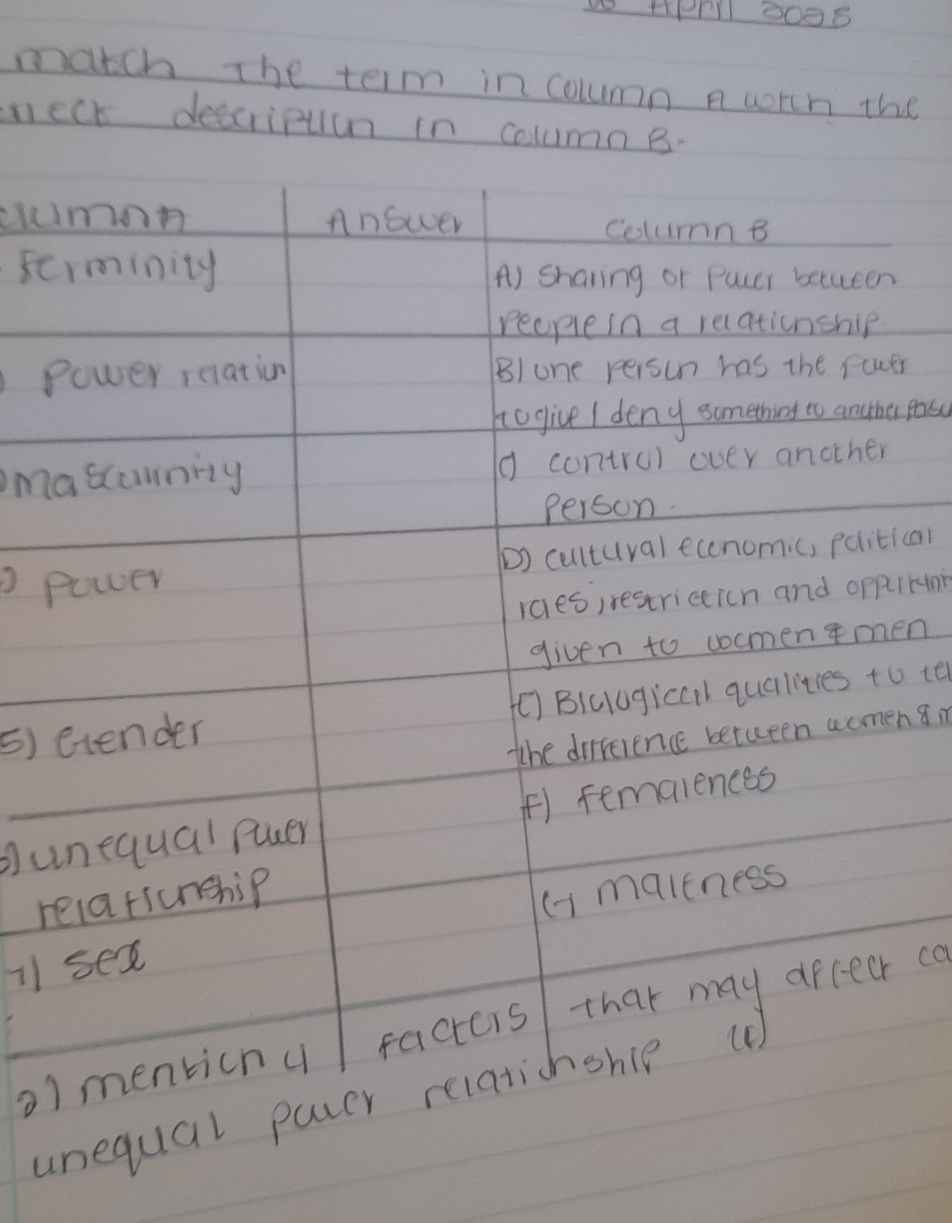 April 2025
match the term in column A with the
description in column B.
Answer
Column B
Ferminity
A) Sharing of Power between
People in a relationship.
Power relation
B) one person has the power
to give / deny something to another
C) control over another
Person.
Power
D) cultural economic, political
restriction and
given to women & men
5) Gender
E) Biological qualities to
the difference between women &
F) Femaleness
unequal Power
relationship
G) maleness
7) sex
2) mention 4 factors that may affect
unequal power relationship (4)